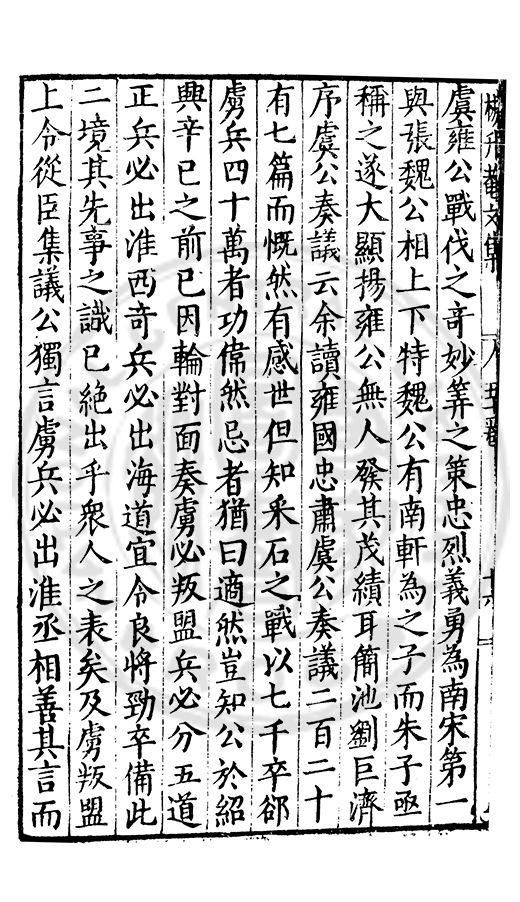 楊升菴文集 八 五十卷 十六
虞雍公戰伐之竒妙筭之策忠烈義勇為南宋第一
與張魏公相上下特魏公有南軒為之子而朱子亟
稱之遂大顯揚雍公無人發其茂績耳簡池劉巨濟
序虞公奏議云余讀雍國忠肅虞公奏議二百二十
有七篇而慨然有感世但知采石之戰以七千卒郤
虜兵四十萬者功偉然忌者猶曰適然豈知公於紹
興辛巳之前已因輪對面奏虜必叛盟兵必分五道
正兵必出淮西奇兵必出海道宜令良將勁卒備此
二境其先事之識已絶出乎衆人之表矣及虜叛盟
上令從臣集議公獨言虜兵必出淮丞相善其言而